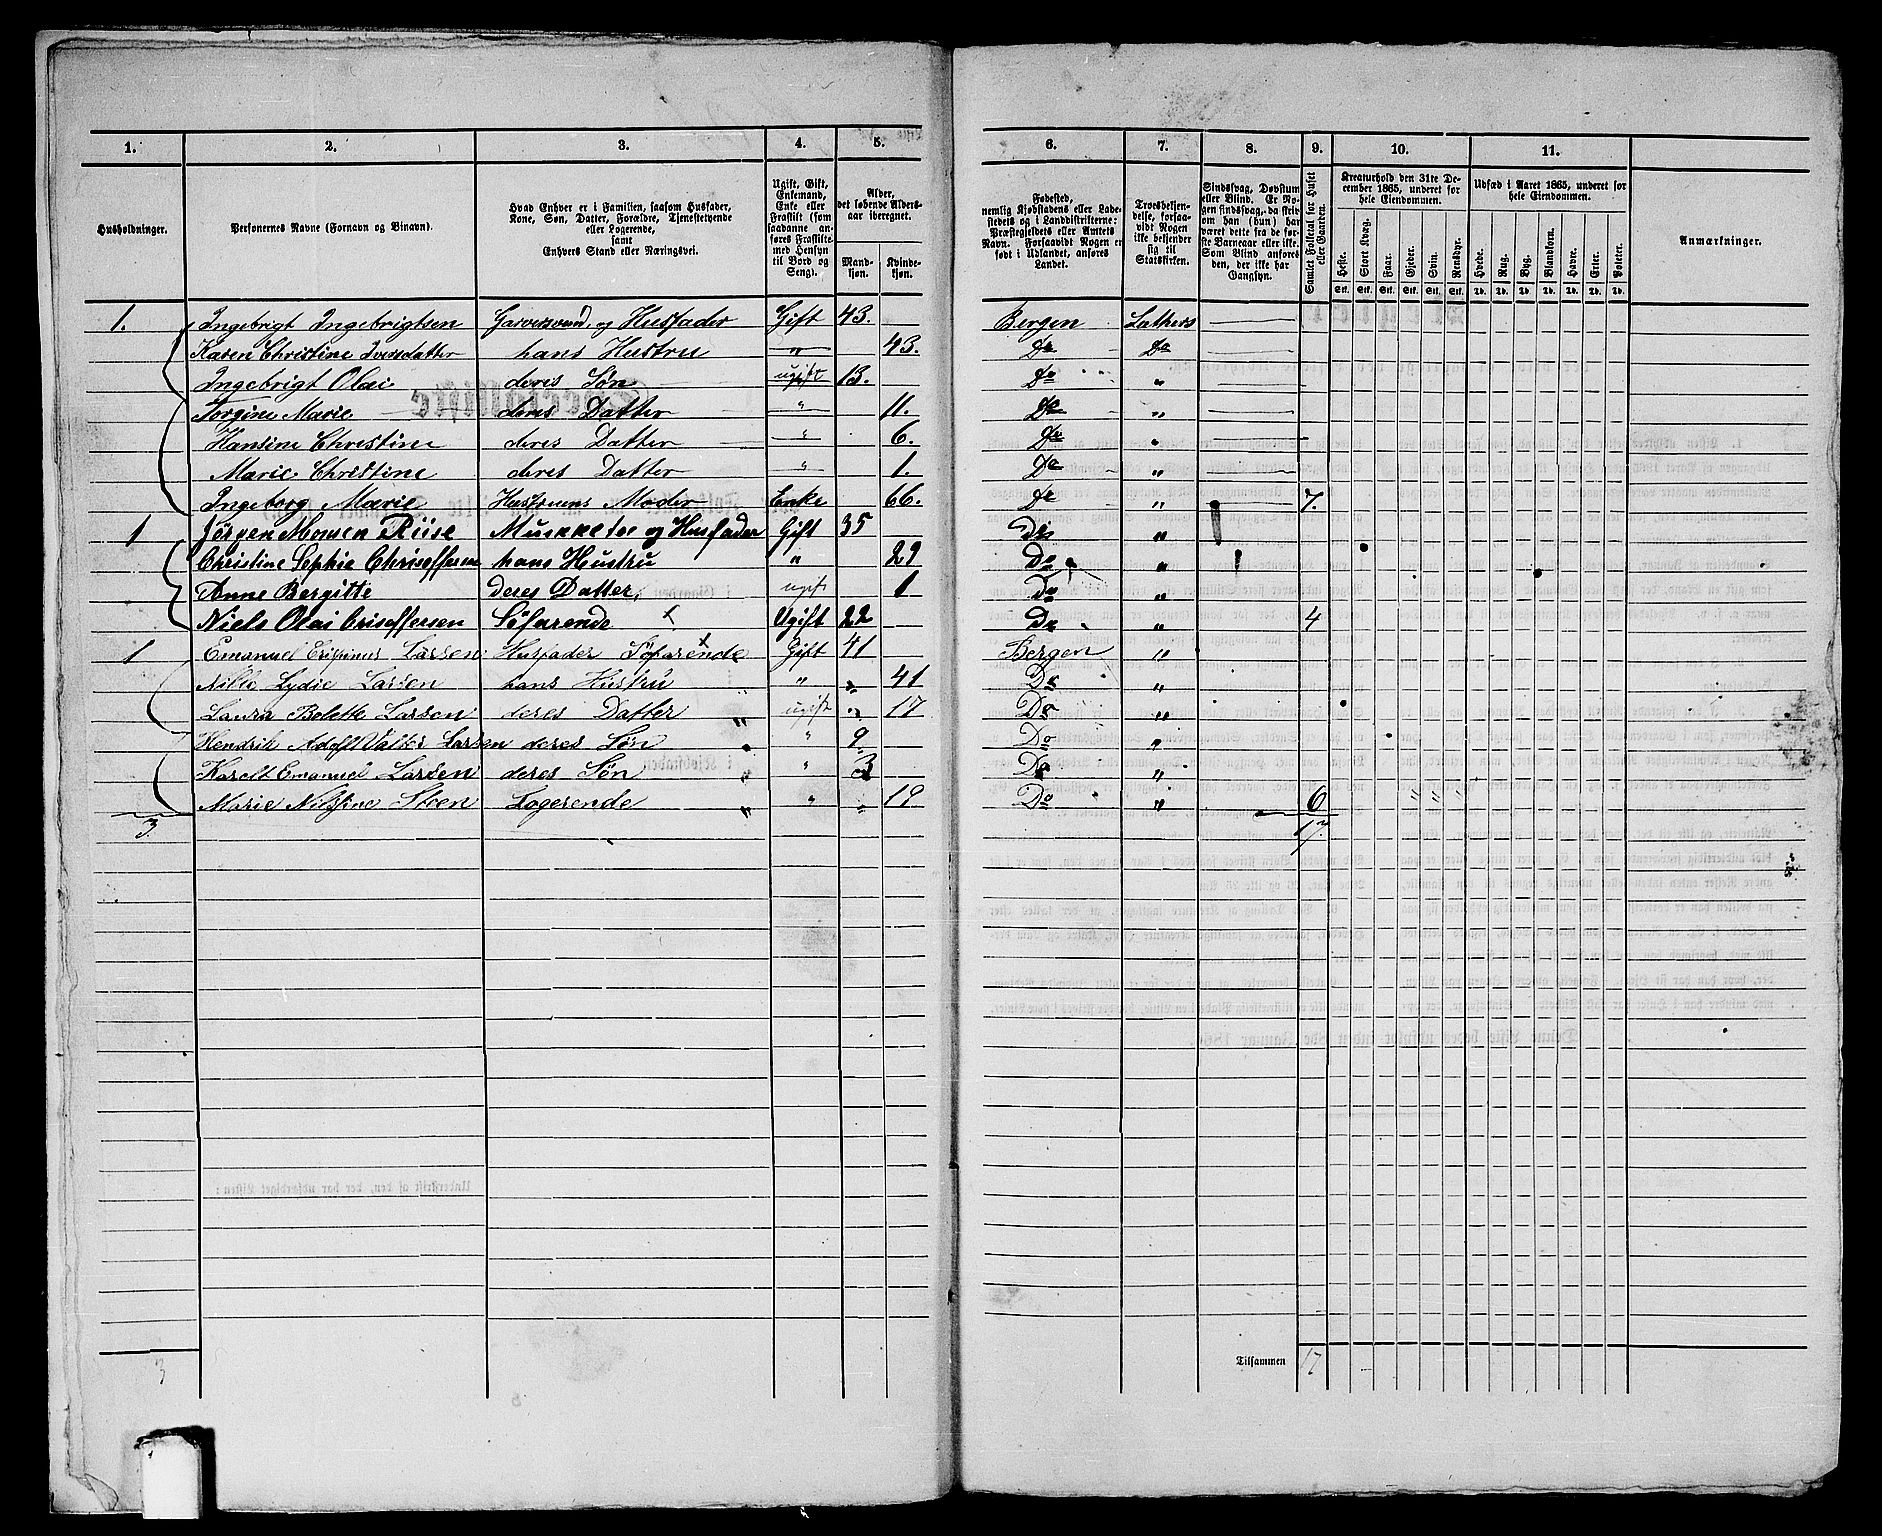 1. 2. 3. 4. 5. 6. 7. 8. 9. 10. 11.
Husholdninger.
Personernes Navne (Fornavn og Binavn).
Hvad Enhver er i Familien, saasom Husfader,
Kone, Søn, Datter, Forældre, Tjenestetyende
eller Logerende,
samt
Enhvers Stand eller Næringsvei.
Ugift, Gift,
Enkemand,
Enke eller
Fraskilt (som
saadanne an-
føres Fraskilte
med Hensyn
til Bord og
Seng).
Alder,
det løbende Alders-
aar iberegnet.
Mand-
kjøn.
Kvinde-
kjøn.
Fødested,
nemlig Kjøbstadens eller Lade-
stedets og i Landdistrikterne:
Præstegjeldets eller Amtets
Navn. Forsaavidt Nogen er
født i Udlandet, anføres
Landet.
Trosbekjen-
delse, forsaa-
vidt Nogen
ikke bekjender
sig til
Statskirken.
Sindssvag, Døvstum
eller Blind. Er No-
gen sindssvag, da skriv
om han (hun) har
været dette fra de før-
ste Barneaar eller ikke.
Som Blind anføres
den, der ikke har
Gangsyn.
Samlet Folketal for Huset
eller Gaarden.
Kreaturhold den 31te De-
cember 1865, underet for
hele Eiendommen.
Heste. Stort Kvæg. Faar. Gjeder. Svin. Rensdyr.
Stk. Stk. Stk. Stk. Stk. Stk.
Udsæd i Aaret 1865, underet for
hele Eiendommen.
Hvede. Rug. Byg. Blandkorn. Havre. Erter. Poteter.
Td. Td. Td. Td. Td. Td. Td.
Anmærkninger.
1. Ingebrigt Ingebrigtsen Garversvend, og Husfader Gift 43. Bergen Luthers
Karen Christine Iversdatter hans Hustru " 43. Do Do
Ingebrigt Olai deres Søn ugift 13. Do "
Torgine Marie deres Datter " 11. Do "
Hansine Christine deres Datter " 6. Do "
Marie Christine deres Datter " 1. Do "
Ingeborg Marie Hustruens Moder Enke 66. Do " 7.
1 Jørgen Monsen Riise Muskketer og Husfader Gift 35 Do "
Christine Sophie Chrisoffersen hans Hustru " 29 Do "
Anne Bergitte deres Datter, ugift 1 Do "
Niels Olai Crisoffersen Søfarende Ugift 22 Do " 4
1 Emanuel Larsen Husfader Søfarende Gift 41 Bergen "
Lydie Larsen hans Hustru " " 41 Do "
Laura Bolette Larsen deres Datter " ugift " 17 Do "
Hendrik Adolf Valter Larsen deres Søn " " 9 Do "
Harolt Emanuel Larsen deres Søn " " 3 Do "
Marie Nilstine Steen Logerende " " " 19 Do " 6
3. 17.
Tilsammen 17
3